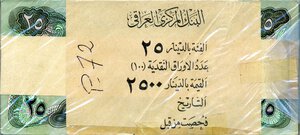 البنك المركزي العراقي
الفئة بالدينار ٢٥
عدد الاوراق النقدية (١٠٠)
القيمة بالدينار ٢٥٠٠
التاريخ
فحصت من قبل
P-72
٢٥
٢٥
25
25